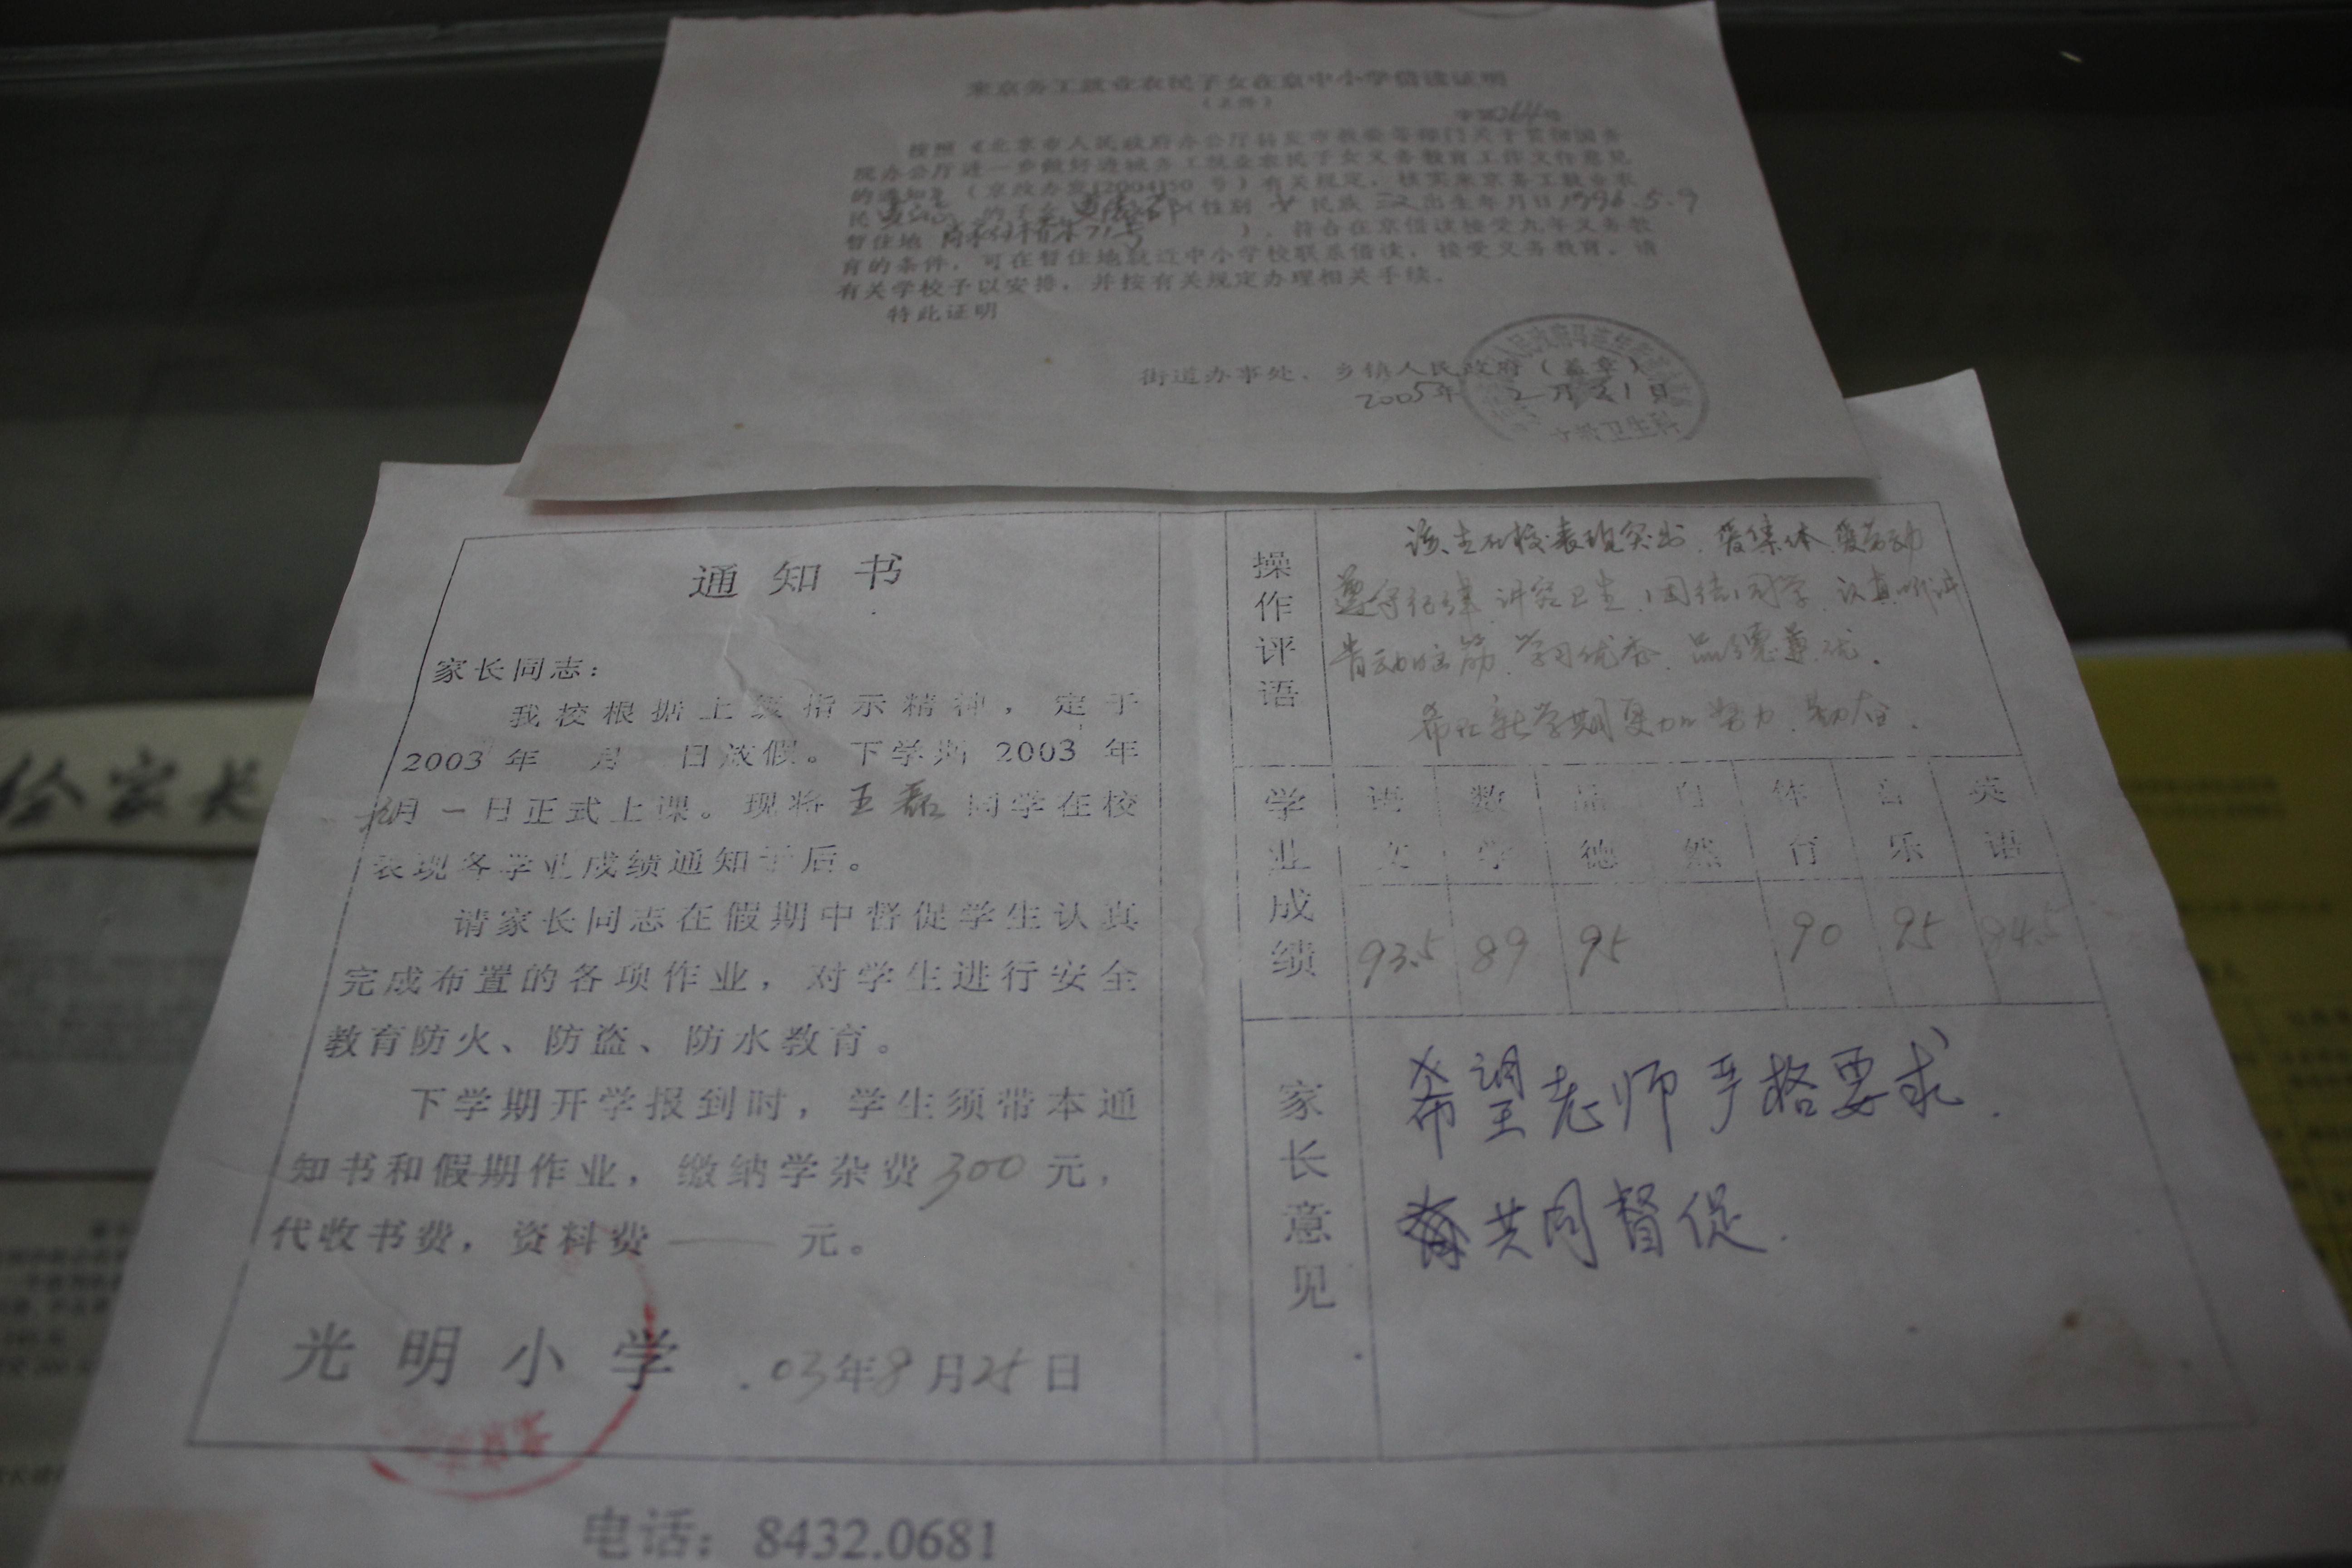 来京务工就业农民子女在京中小学借读证明
按照《北京市人民政府办公厅转发市教委等部门关于贯彻国务
院办公厅进一步做好进城务工就业农民子女义务教育工作文件意见
的通知》(京政办发[2004]50 号)有关规定,核实来京务工就业农
民 的子女 (性别 女 民族 汉 出生年月日1996.5.9
暂住地 71号 ),符合在京借读接受九年义务教
育的条件,可在暂住地就近中小学校联系借读,接受义务教育。请
有关学校予以安排,并按有关规定办理相关手续。
特此证明
街道办事处、乡镇人民政府(盖章)
2005年 2月21日
通知书
家长同志:
我校根据上级指示精神,定于
2003 年 月 日放假。下学期 2003 年
月一日正式上课。现将 王磊 同学在校
表现各学业成绩通知于后。
请家长同志在假期中督促学生认真
完成布置的各项作业,对学生进行安全
教育防火、防盗、防水教育。
下学期开学报到时,学生须带本通
知书和假期作业,缴纳学杂费300元,
代收书费,资料费——元。
光明小学 03年8月25日
电话:8432.0681
操作评语
该生在校表现突出、爱集体、爱劳动
遵守纪律、讲究卫生、团结同学、认真听讲
肯动脑筋、学习优秀、品德兼优。
希在新学期更加努力
学业成绩
语文 数学 品德 自然 体育 音乐 英语
93.5 89 95 90 95 94.5
家长意见
希望老师严格要求.
共同督促.
给家长